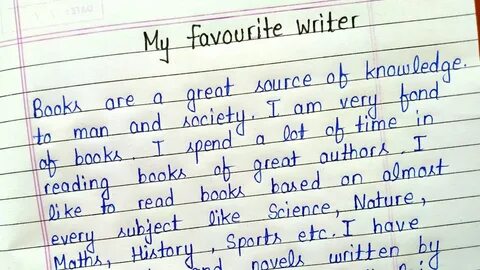 My favourite writer
Books are a great source of knowledge.
to man and society. I am very fond
of books. I spend a lot of time in
reading books of great authors. I
like to read books based on almost
every subject like Science, Nature,
Maths, History, Sports etc. I have
and novels written by